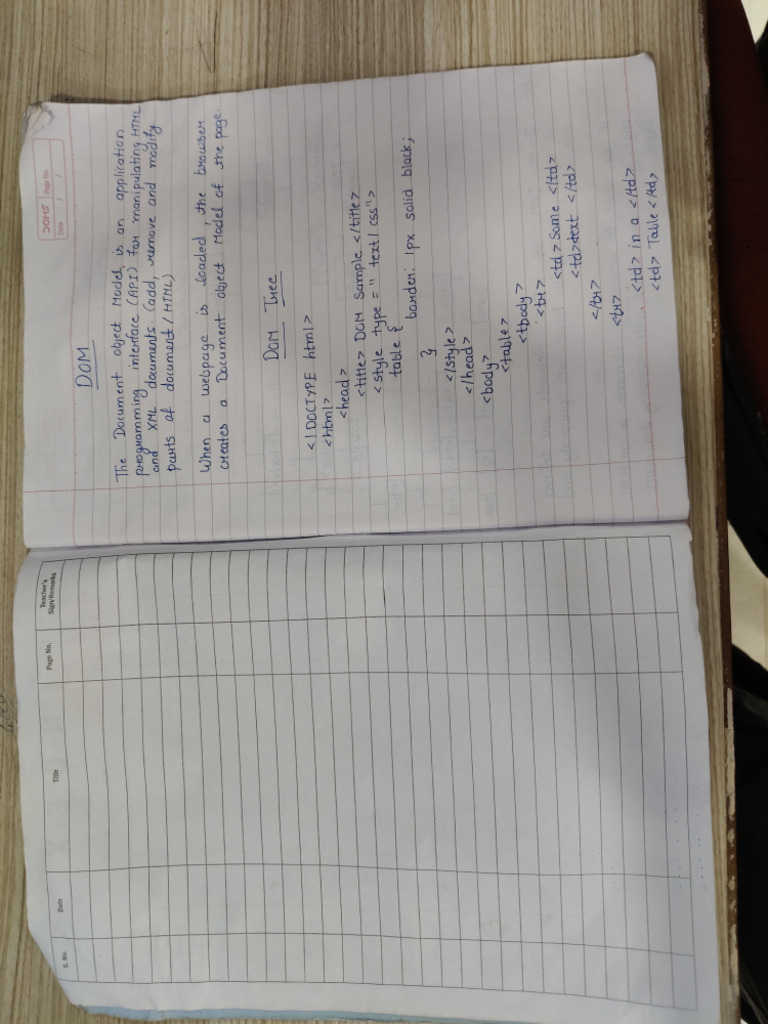 DOMS Page No.
Date / /
DOM
The Document object Model, is an application
programming interface (API) for manipulating HTML
and XML documents (add, remove and modify
parts of document / HTML)
When a webpage is loaded, the browser
creates a Document object Model of the page.
DOM Tree
<!DOCTYPE html>
<html>
<head>
<title> DOM Sample </title>
<style type = " text / css">
table {
border: 1px solid black;
}
</style>
</head>
<body>
<table>
<tbody>
<tr>
<td> Some </td>
<td>text </td>
</tr>
<tr>
<td> in a </td>
<td> Table </td>
S. No. Date Title Page No. Teacher's
Sign/Remarks